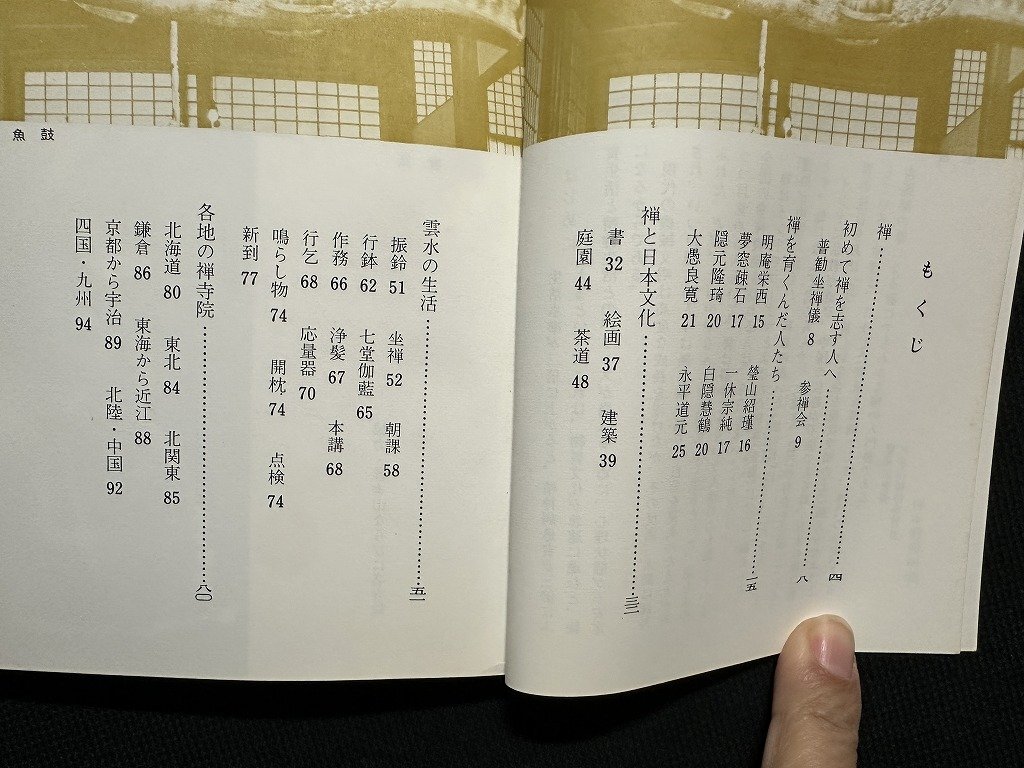 もくじ
禅……四
初めて禅を志す人へ……八
普勧坐禅儀 8 参禅会 9
禅を育くんだ人たち……一五
明庵栄西 15 瑩山紹瑾 16
夢窓疎石 17 一休宗純 17
隠元隆琦 20 白隠慧鶴 20
大愚良寛 21 永平道元 25
禅と日本文化……三二
書 32 絵画 37 建築 39
庭園 44 茶道 48
雲水の生活……五一
振鈴 51 坐禅 52 朝課 58
行鉢 62 七堂伽藍 65
作務 66 浄髪 67 本講 68
行乞 68 応量器 70
鳴らし物 74 開枕 74 点検 74
新到 77
各地の禅寺院……八〇
北海道 80 東北 84 北関東 85
鎌倉 86 東海から近江 88
京都から宇治 89 北陸・中国 92
四国・九州 94
魚鼓